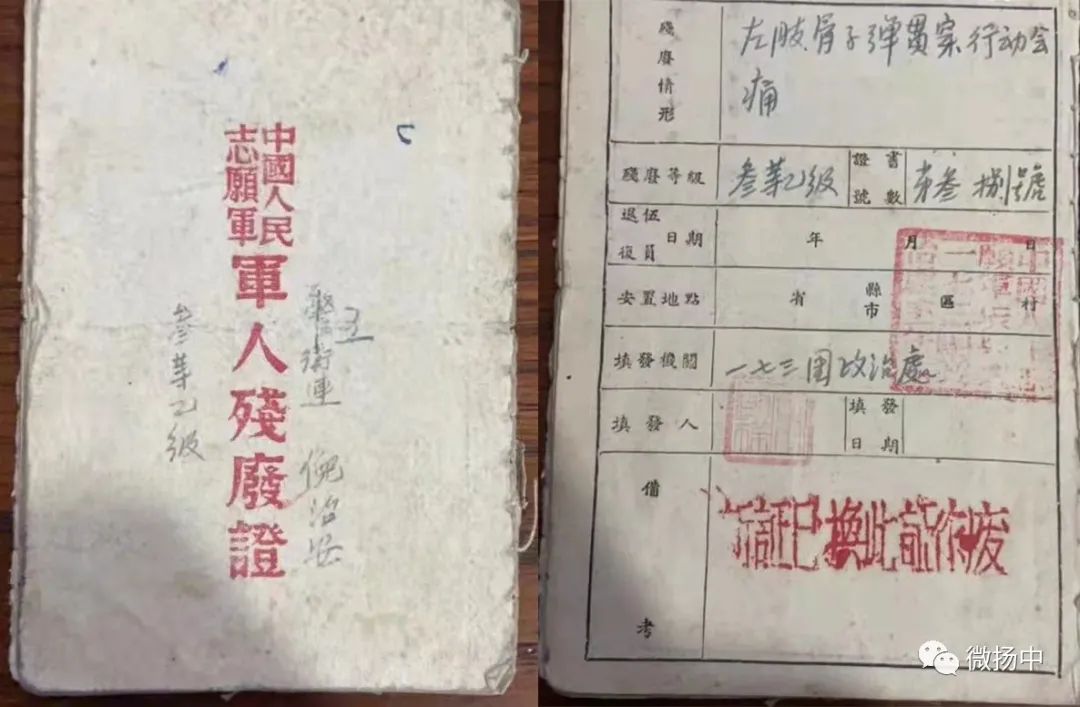 中國人民
志願軍
軍人殘廢證
五
警衛連 倪治安
叁等乙级
殘廢情形
左肢骨子弹贯穿行动会
痛
殘廢等級 叁等乙级 證書號數 第叁捌號
退伍復員日期 年 月 日
安置地點 省 縣市 區 村
填發機關 一七三团政治處
填發人 填發日期
備考
新証已換此証作废
微扬中